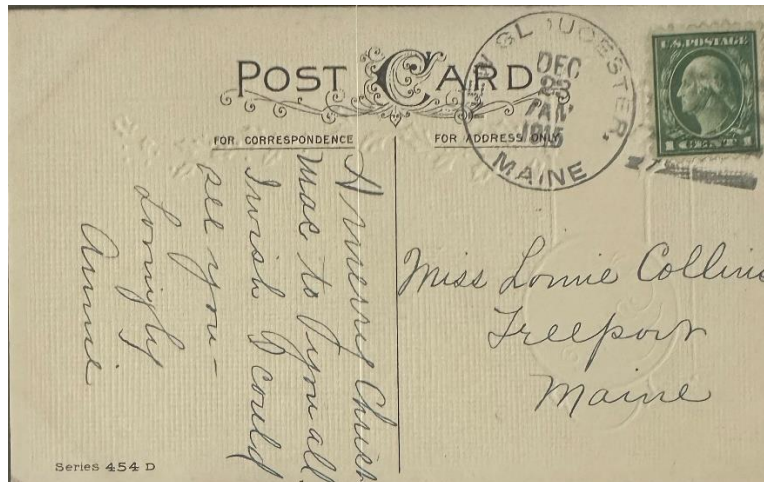 POST CARD
FOR CORRESPONDENCE
FOR ADDRESS ONLY
GLOUCESTER,
DEC
23
7 AM
1915
MAINE
U.S. POSTAGE
1 CENT 1
A merry Christ
mac to you all
I wish I could
see you -
Lovingly
Annie
Miss Lonnie Collins
Freeport
Maine
Series 454 D